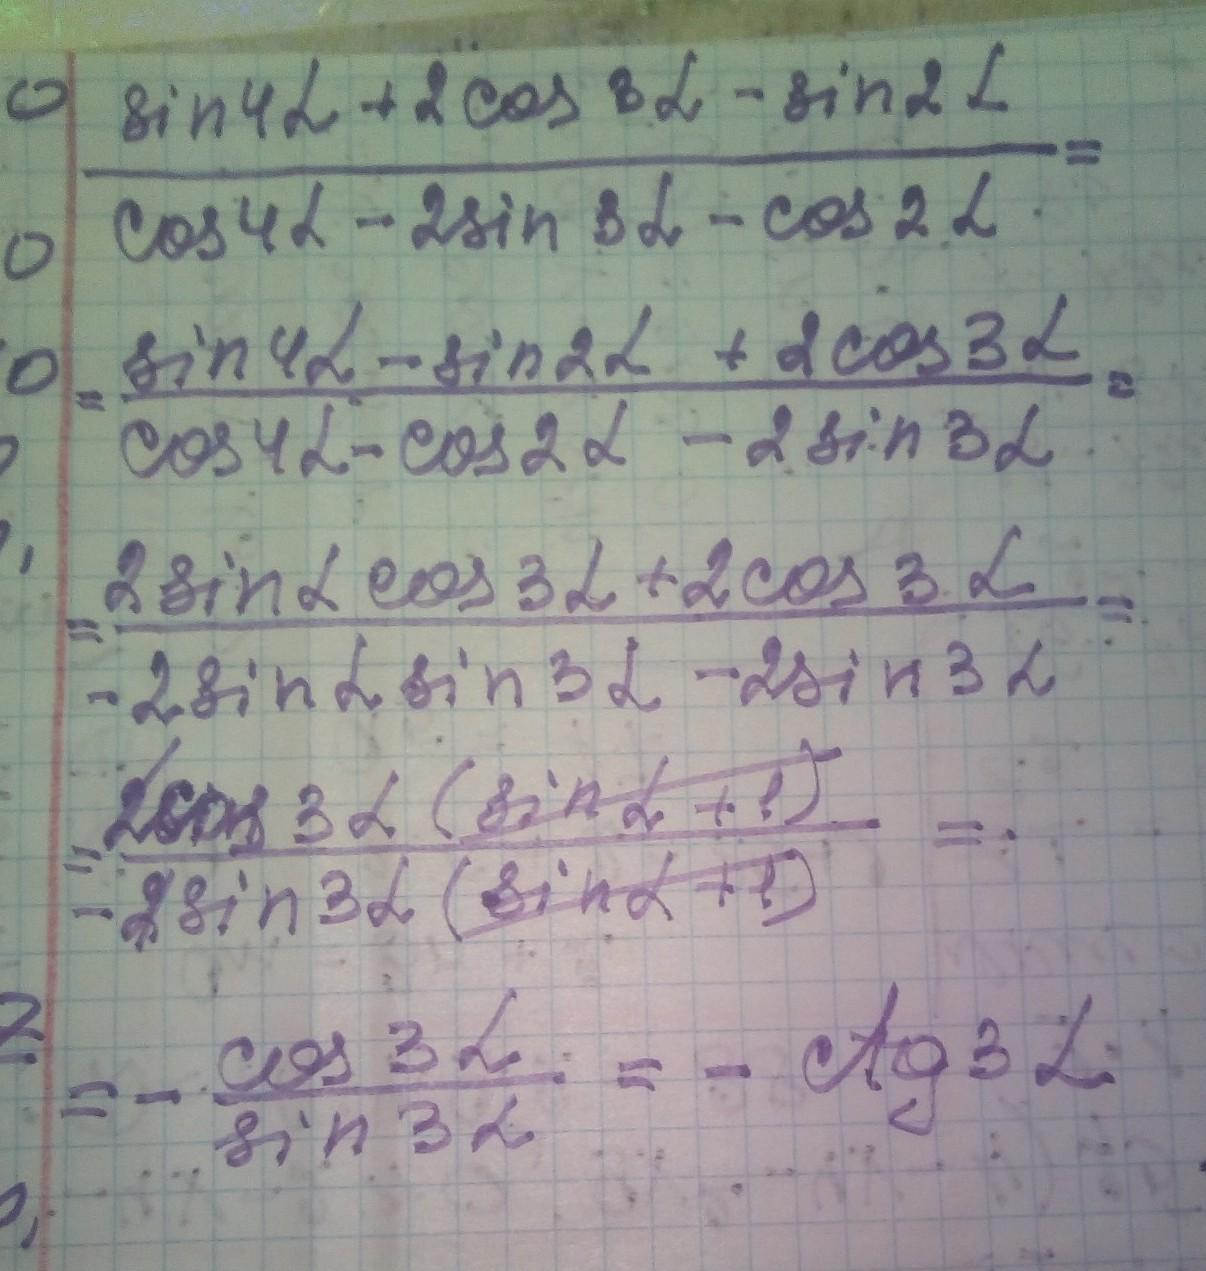 sin4α + 2cos 3α - sin2α
=
cos4α - 2sin 3α - cos2α
sin4α - sin2α + 2cos3α
= =
cos4α - cos2α - 2sin3α
2sinα cos3α + 2cos3α
= =
-2sinα sin3α - 2sin3α
2cos3α (sinα + 1)
= =
-2sin3α (sinα + 1)
cos3α
= - = - ctg3α
sin3α